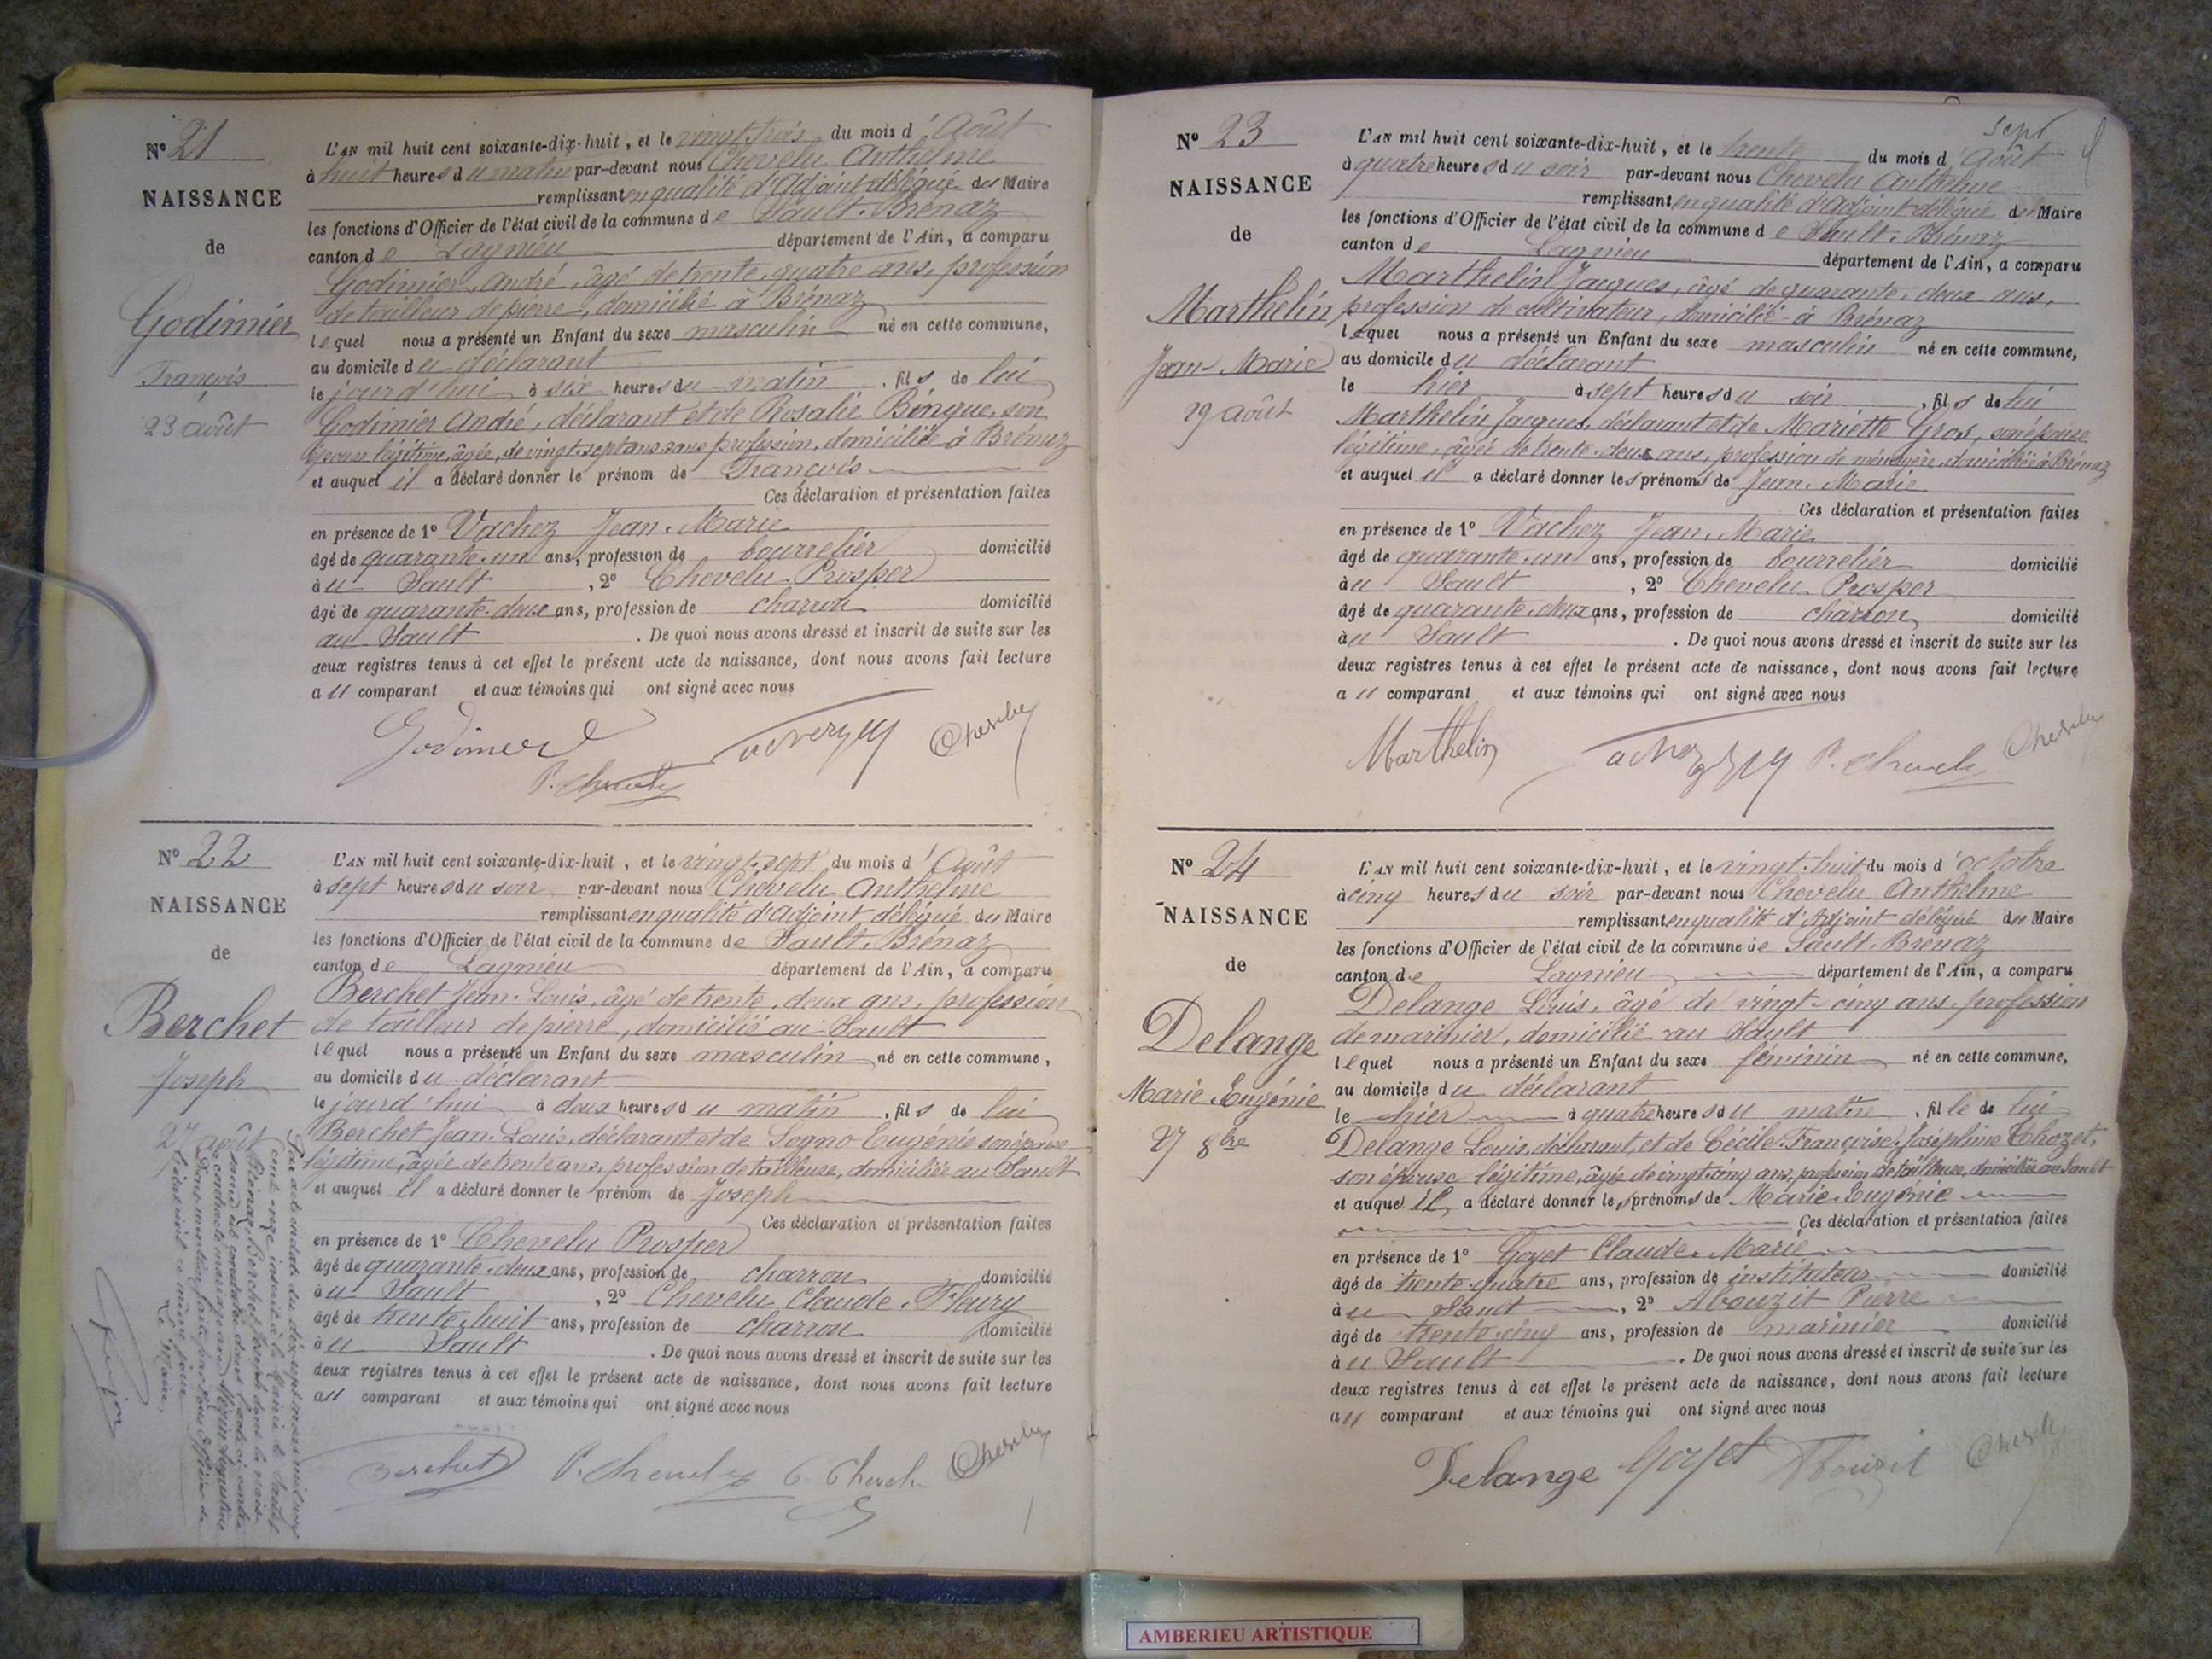 N° 21
NAISSANCE
de
Godimier
François
23 août
L'AN mil huit cent soixante-dix-huit, et le vingt-trois du mois d'Août
à huit heures du matin par-devant nous Chevelu Anthelme
remplissant en qualité d'Adjoint délégué du Maire
les fonctions d'Officier de l'état civil de la commune de Sault-Brénaz
canton de Lagnieu département de l'Ain, a comparu
Godimier André, âgé de trente-quatre ans, profession
de tailleur de pierre, domicilié à Brénaz
lequel nous a présenté un Enfant du sexe masculin né en cette commune,
au domicile du déclarant
le jourd'hui à six heures du matin, fils de lui
Godimier André, déclarant et de Rosalie Bingue, son
épouse légitime, âgée de vingt-sept ans sans profession, domiciliée à Brénaz
et auquel il a déclaré donner le prénom de François
Ces déclaration et présentation faites
en présence de 1° Vachez Jean-Marie
âgé de quarante-un ans, profession de bourrelier domicilié
au Sault, 2° Chevelu Prosper
âgé de quarante-deux ans, profession de charron domicilié
au Sault. De quoi nous avons dressé et inscrit de suite sur les
deux registres tenus à cet effet le présent acte de naissance, dont nous avons fait lecture
au comparant et aux témoins qui ont signé avec nous
P. Chevelu
Chevelu
N° 22
NAISSANCE
de
Berchet
Joseph
27 août
L'AN mil huit cent soixante-dix-huit, et le vingt-sept du mois d'Août
à sept heures du soir par-devant nous Chevelu Anthelme
remplissant en qualité d'Adjoint délégué du Maire
les fonctions d'Officier de l'état civil de la commune de Sault-Brénaz
canton de Lagnieu département de l'Ain, a comparu
Berchet Jean-Louis, âgé de trente-deux ans, profession
de tailleur de pierre, domicilié au Sault
lequel nous a présenté un Enfant du sexe masculin né en cette commune,
au domicile du déclarant
le jourd'hui à deux heures du matin, fils de lui
Berchet Jean-Louis, déclarant et de Sogno Eugénie son épouse
légitime, âgée de trente ans, profession de tailleuse, domiciliée au Sault
et auquel il a déclaré donner le prénom de Joseph
Ces déclaration et présentation faites
en présence de 1° Chevelu Prosper
âgé de quarante-deux ans, profession de charron domicilié
au Sault, 2° Chevelu Claude-Fleury
âgé de trente-huit ans, profession de charron domicilié
au Sault. De quoi nous avons dressé et inscrit de suite sur les
deux registres tenus à cet effet le présent acte de naissance, dont nous avons fait lecture
au comparant et aux témoins qui ont signé avec nous
Berchet
P. Chevelu
C. Chevelu
Chevelu
N° 23
NAISSANCE
de
Marthelin
Jean-Marie
29 août
sept
L'AN mil huit cent soixante-dix-huit, et le trente du mois d'Août
à quatre heures du soir par-devant nous Chevelu Anthelme
remplissant en qualité d'adjoint délégué du Maire
les fonctions d'Officier de l'état civil de la commune de Sault-Brénaz
canton de Lagnieu département de l'Ain, a comparu
Marthelin Jacques, âgé de quarante-deux ans,
profession de cultivateur, domicilié à Brénaz
lequel nous a présenté un Enfant du sexe masculin né en cette commune,
au domicile du déclarant
le hier à sept heures du soir, fils de lui
Marthelin Jacques, déclarant et de Mariette Gros, son épouse
légitime, âgée de trente-deux ans, profession de ménagère, domiciliée à Brénaz
et auquel il a déclaré donner les prénoms de Jean-Marie
Ces déclaration et présentation faites
en présence de 1° Vachez Jean-Marie
âgé de quarante-un ans, profession de bourrelier domicilié
au Sault, 2° Chevelu Prosper
âgé de quarante-deux ans, profession de charron domicilié
au Sault. De quoi nous avons dressé et inscrit de suite sur les
deux registres tenus à cet effet le présent acte de naissance, dont nous avons fait lecture
au comparant et aux témoins qui ont signé avec nous
Marthelin
P. Chevelu
Chevelu
N° 24
NAISSANCE
de
Delange
Marie-Eugénie
27 8bre
L'AN mil huit cent soixante-dix-huit, et le vingt-huit du mois d'octobre
à cinq heures du soir par-devant nous Chevelu Anthelme
remplissant en qualité d'Adjoint délégué du Maire
les fonctions d'Officier de l'état civil de la commune de Sault-Brénaz
canton de Lagnieu département de l'Ain, a comparu
Delange Louis, âgé de vingt-cinq ans, profession
de marinier, domicilié au Sault
lequel nous a présenté un Enfant du sexe féminin né en cette commune,
au domicile du déclarant
le hier à quatre heures du matin, fille de lui
Delange Louis, déclarant, et de Cécile-Françoise-Joséphine Chozet,
son épouse légitime, âgée de vingt-cinq ans, profession de tailleuse, domiciliée au Sault
et auquel il a déclaré donner les prénoms de Marie-Eugénie
Ces déclaration et présentation faites
en présence de 1° Goyet Claude-Marie
âgé de trente-quatre ans, profession de instituteur domicilié
au Sault, 2° Abouzit Pierre
âgé de trente-cinq ans, profession de marinier domicilié
au Sault. De quoi nous avons dressé et inscrit de suite sur les
deux registres tenus à cet effet le présent acte de naissance, dont nous avons fait lecture
au comparant et aux témoins qui ont signé avec nous
Delange Goyet Abouzit Chevelu
AMBERIEU ARTISTIQUE